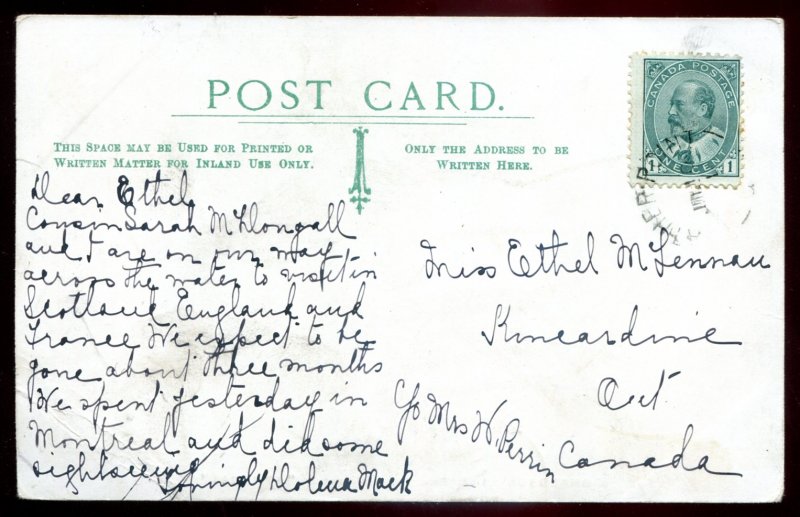 POST CARD.
THIS SPACE MAY BE USED FOR PRINTED OR
WRITTEN MATTER FOR INLAND USE ONLY.
ONLY THE ADDRESS TO BE
WRITTEN HERE.
CANADA POSTAGE
ONE CENT
1 1
Dear Ethel
Cousin Sarah McDongall
and I are on our way
across the water to visit in
Scotland England and
France We expect to be
gone about three months
We spent yesterday in
Montreal and did some
sightseeing
Lovingly Dolena Mack
Miss Ethel McLennan
Kincardine
Ont
c/o Mrs W. Perrin
Canada